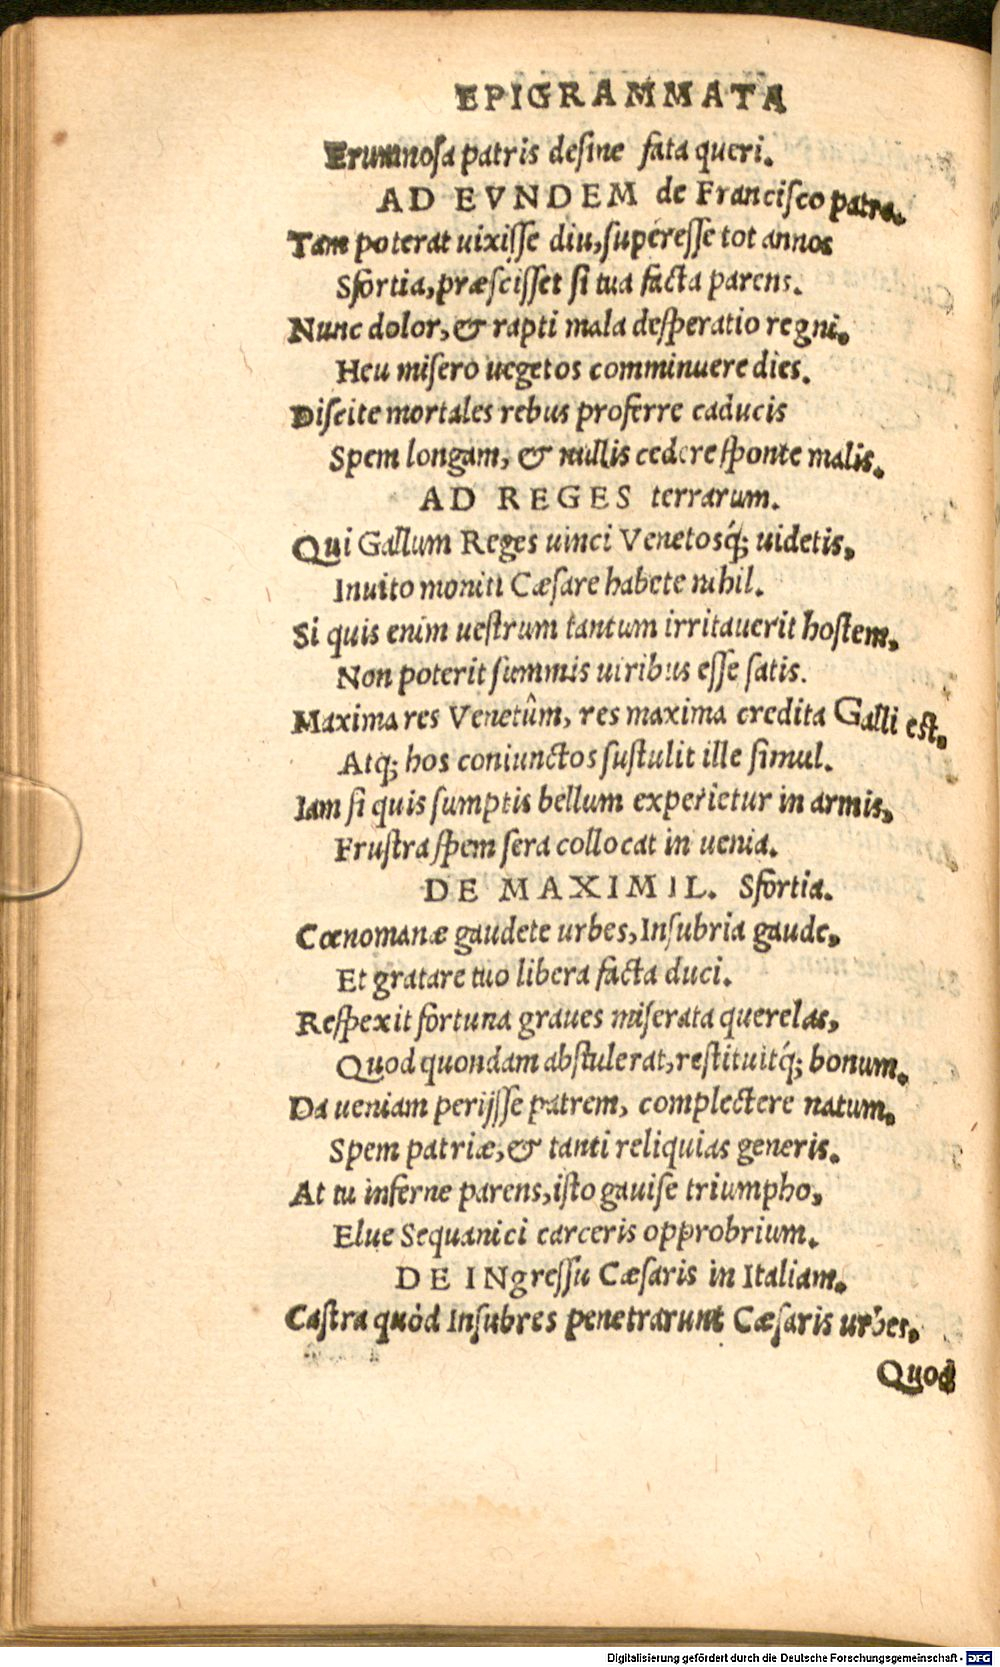 EPIGRAMMATA
Erumnosa patris desine fata queri.
AD EVNDEM de Francisco patre.
Tam poterat uixisse diu, superesse tot annos
Sfortia, præscisset si tua facta parens.
Nunc dolor, & rapti mala desperatio regni,
Heu misero uegetos comminuere dies.
Discite mortales rebus proferre caducis
Spem longam, & nullis cedere sponte malis.
AD REGES terrarum.
Qui Gallum Reges uinci Venetosq́; uidetis,
Inuito moniti Cæsare habete nihil.
Si quis enim uestrum tantum irritauerit hostem,
Non poterit summis uiribus esse satis.
Maxima res Venetûm, res maxima credita Galli est,
Atq; hos coniunctos sustulit ille simul.
Iam si quis sumptis bellum experietur in armis,
Frustra spem sera collocat in uenia.
DE MAXIMIL. Sfortia.
Cœnomanæ gaudete urbes, Insubria gaude,
Et gratare tuo libera facta duci.
Respexit fortuna graues miserata querelas,
Quod quondam abstulerat, restituitq́; bonum.
Da ueniam perijsse patrem, complectere natum,
Spem patriæ, & tanti reliquias generis.
At tu inferne parens, isto gauise triumpho,
Elue Sequanici carceris opprobrium.
DE INgressu Cæsaris in Italiam.
Castra quòd Insubres penetrarunt Cæsaris urbes,
Quod
Digitalisierung gefördert durch die Deutsche Forschungsgemeinschaft - DFG